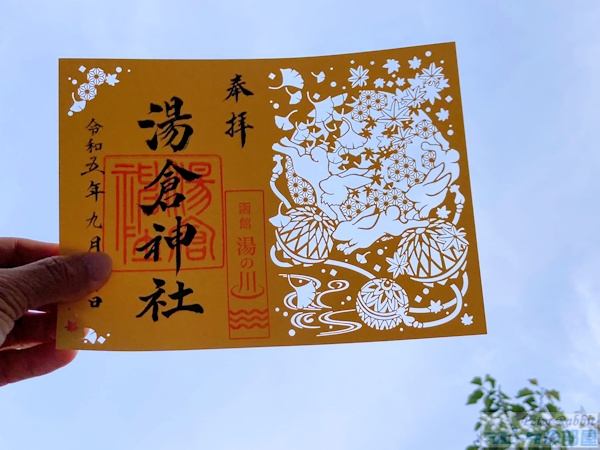 奉拝
湯倉神社
令和五年九月
日
函館
湯の川
湯倉神社